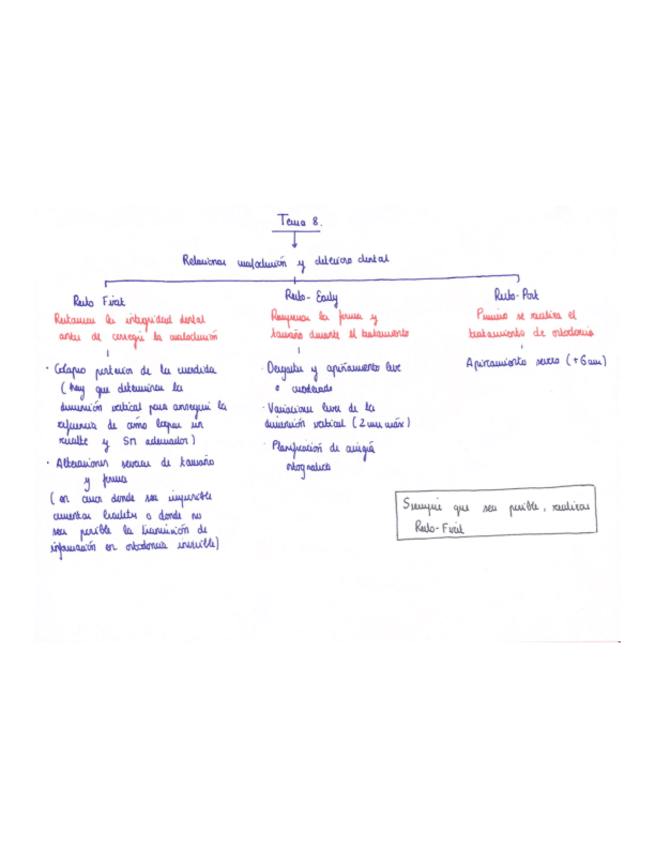 Tema 8.
Relacionar maloclusión y deterioro dental
Resto First
Restaurar la integridad dental
antes de corregir la maloclusión
· Colapso posterior de la mordida
(Hay que determinar la
dimensión vertical para conseguir la
referencia de cómo lograr un
resalte y SM adecuados)
· Alteraciones severas de tamaño
y forma
(en casos donde sea imposible
cementar brackets o donde no
sea posible la transmisión de
información en ortodoncia invisible)
Resto-Early
Recuperar la forma y
tamaño durante el tratamiento
· Desgaste y apiñamiento leve
o moderado
· Variaciones leves de la
dimensión vertical (2 mm máx)
· Planificación de cirugía
ortognática
Resto-Post
Primero se realiza el
tratamiento de ortodoncia
Apiñamiento severo (+6 mm)
Siempre que sea posible, realizar
Resto-First